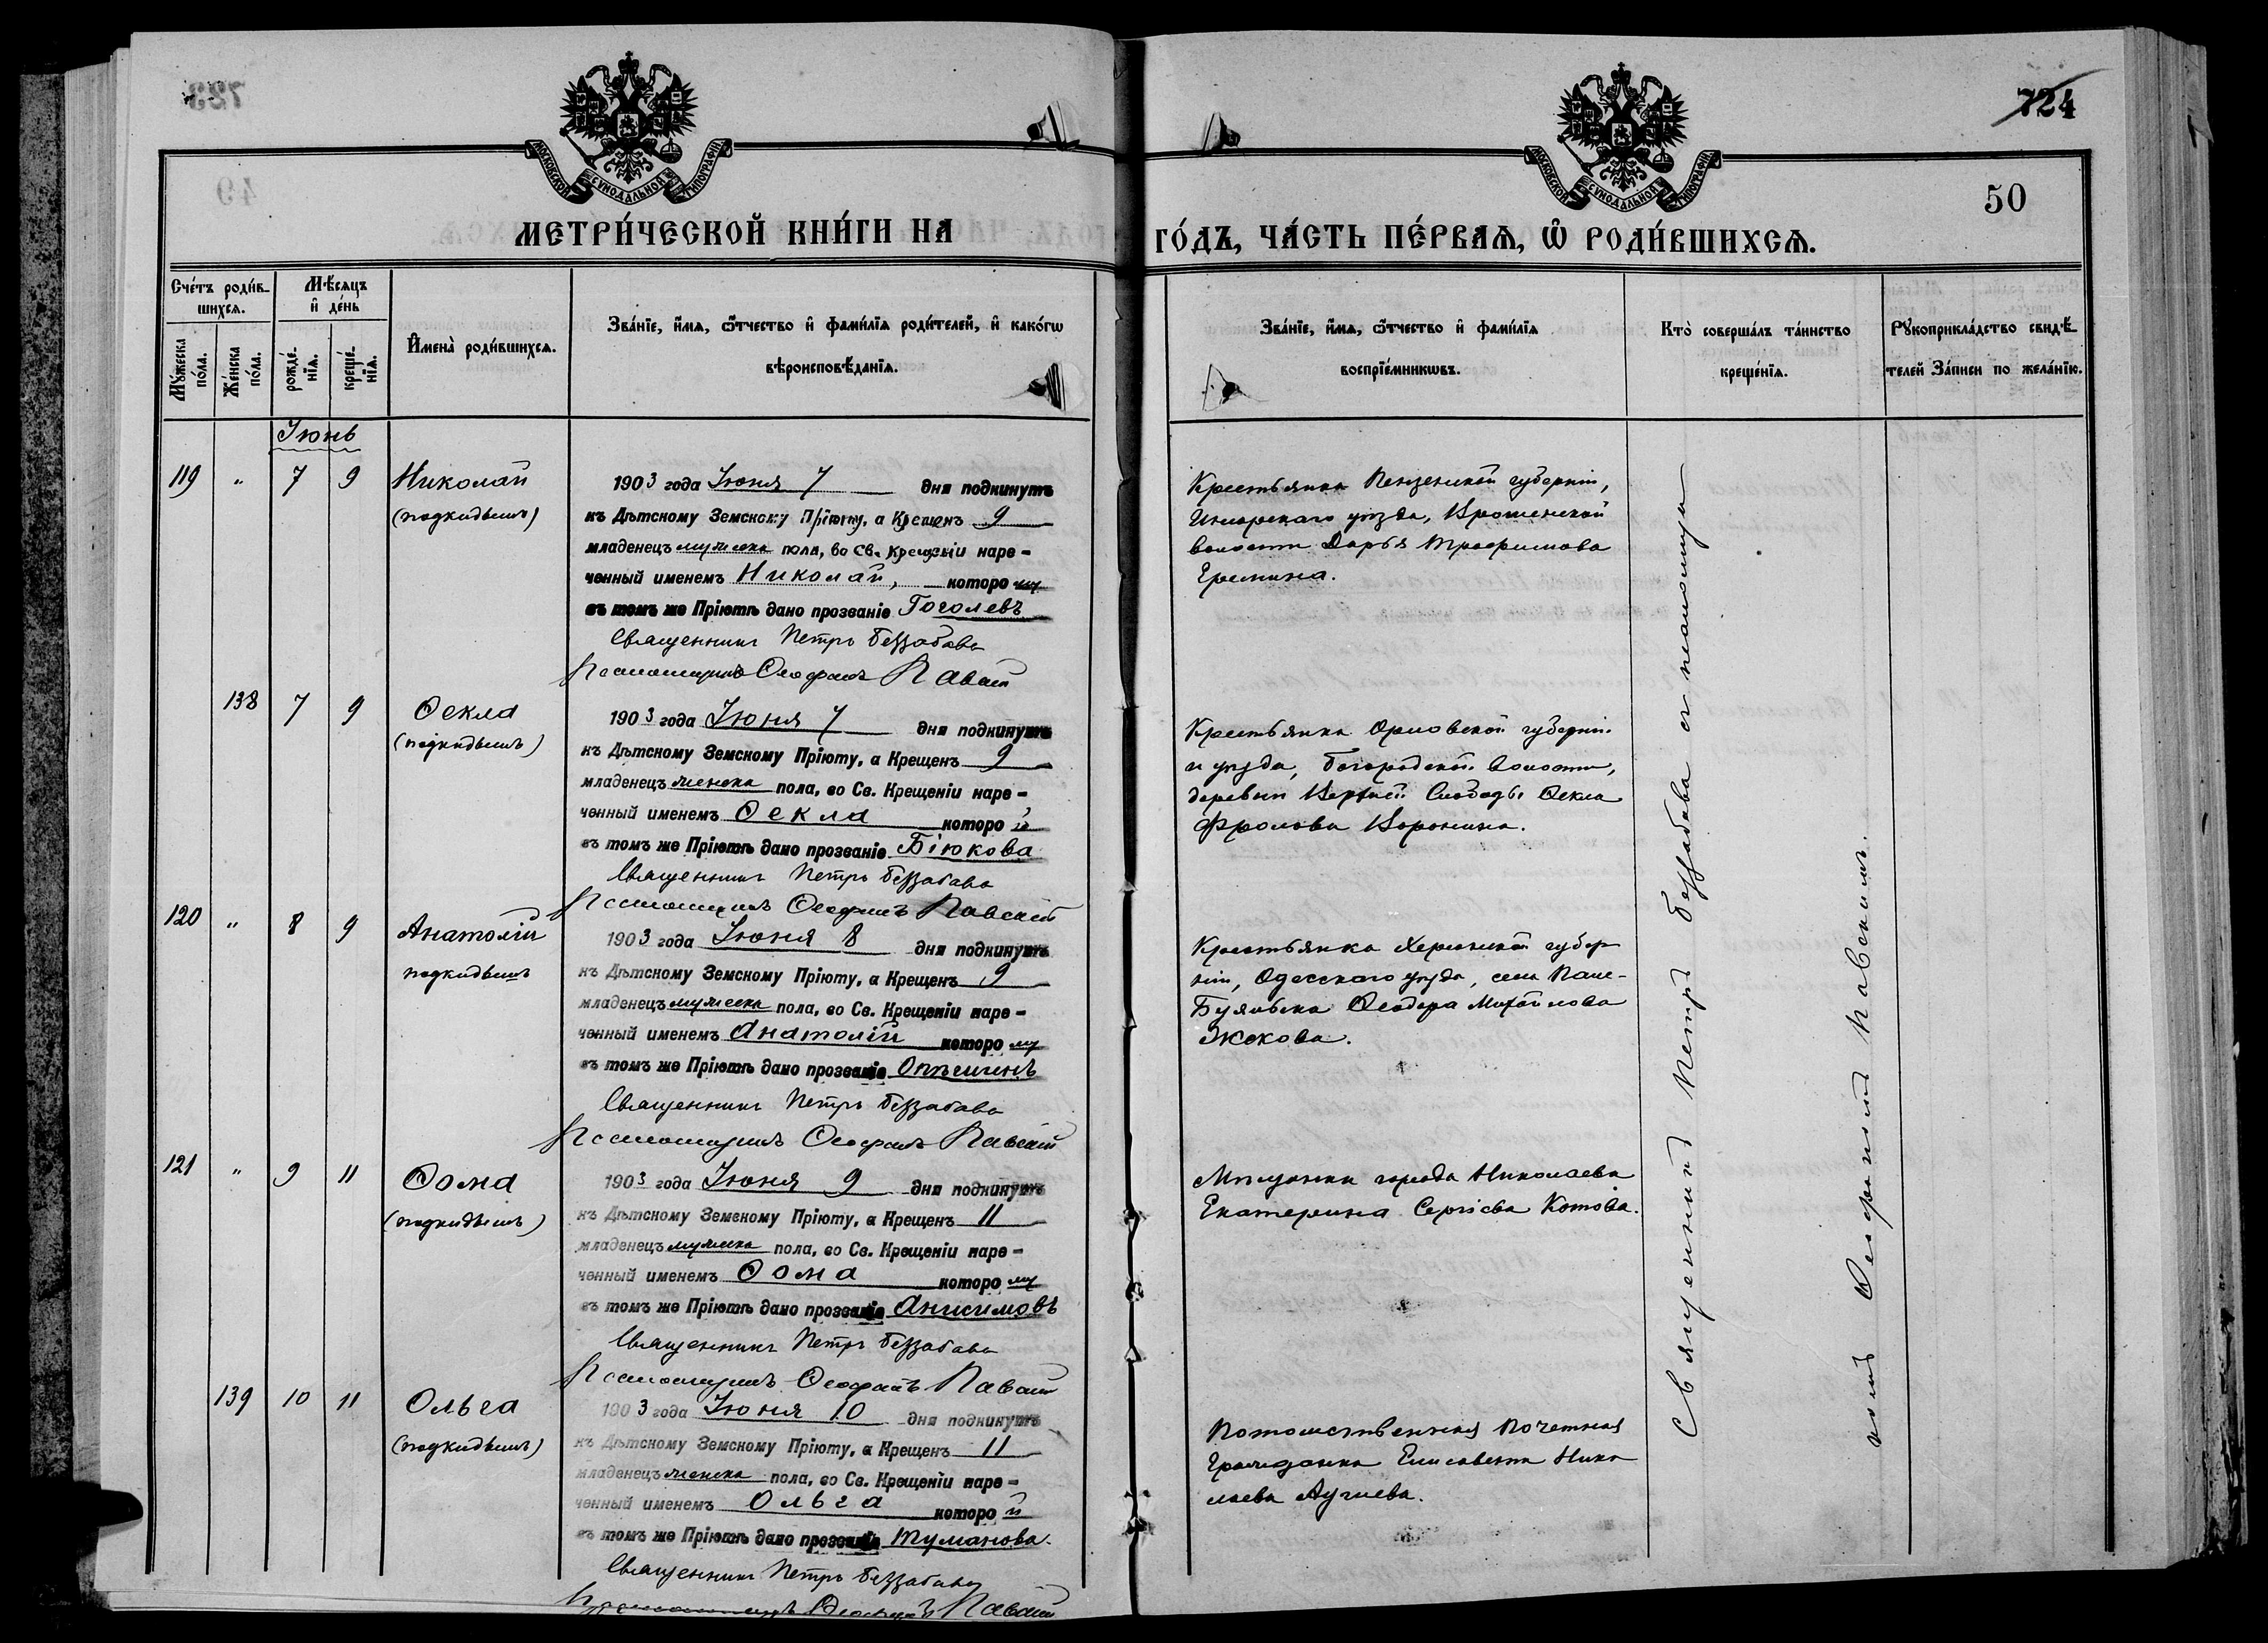 724
50
МОСКОВСКОЙ СѴНОДАЛЬНОЙ ТИПОГРАФІИ
МОСКОВСКОЙ СѴНОДАЛЬНОЙ ТИПОГРАФІИ
МЕТРИ́ЧЕСКОЙ КНИ́ГИ НА
ГО́ДЪ, ЧА́СТЬ ПЕ́РВАѦ, Ѽ РОДИ́ВШИХСѦ.
Сче́тъ роди́в-
шихсѧ.
Мѣ́сѧцъ
и҆ де́нь
Мꙋ́жеска по́ла.
Же́нска по́ла.
рожде́-нїѧ.
креще́-нїѧ.
И҆мена̀ роди́вшихсѧ.
Зва́нїе, и҆́мѧ, ѻ҆́тчество и҆ фами́лїѧ роди́телей, и҆ како́гѡ
вѣроисповѣ́данїѧ.
Зва́нїе, и҆́мѧ, ѻ҆́тчество и҆ фами́лїѧ
воспрїе́мникѡвъ.
Кто̀ соверша́лъ та́инство
креще́нїѧ.
Рꙋкоприкла́дство свидѣ́-
телей За́писи по жела́нїю.
Іюнь
119 " 7 9 Николай
(подкидышъ)
1903 года Іюня 7 дня подкинутъ
къ Дѣтскому Земскому Пріюту, а Крещенъ 9
младенецъ мужеска пола, во Св. Крещеніи наре-
ченный именемъ Николай, которому
въ томъ же Пріютѣ дано прозваніе Гоголевъ
Священникъ Петръ Беззабава
Псаломщикъ Ѳеофанъ Павскій
Крестьянка Пензенской губерніи,
Инсарскаго уѣзда,
волости Дарья Трофимова
Еремина.
138 7 9 Ѳекла
(подкидышъ)
1903 года Іюня 7 дня подкинутъ
къ Дѣтскому Земскому Пріюту, а Крещенъ 9
младенецъ женска пола, во Св. Крещеніи наре-
ченный именемъ Ѳекла которой
въ томъ же Пріютѣ дано прозваніе Бiюкова
Священникъ Петръ Беззабава
Псаломщикъ Ѳеофанъ Павскій
Крестьянка Орловской губерніи
и уѣзда, Богородской волости,
деревни Слободы Ѳекла
Фролова Воронина.
120 " 8 9 Анатолій
подкидышъ
1903 года Іюня 8 дня подкинутъ
къ Дѣтскому Земскому Пріюту, а Крещенъ 9
младенецъ мужеска пола, во Св. Крещеніи наре-
ченный именемъ Анатолій которому
въ томъ же Пріютѣ дано прозваніе
Священникъ Петръ Беззабава
Псаломщикъ Ѳеофанъ Павскій
Крестьянка Херсонской губер
ніи, Одесскаго уѣзда, села
Буялыка Ѳеодора Михайлова
Экокова.
121 " 9 11 Ѳома
(подкидышъ)
1903 года Іюня 9 дня подкинутъ
къ Дѣтскому Земскому Пріюту, а Крещенъ 11
младенецъ мужеска пола, во Св. Крещеніи наре-
ченный именемъ Ѳома которому
въ томъ же Пріютѣ дано прозваніе Анисимовъ
Священникъ Петръ Беззабава
Псаломщикъ Ѳеофанъ Павскій
Мѣщанка города Николаева
Екатерина Сергіева Котова.
139 10 11 Ольга
(подкидышъ)
1903 года Іюня 10 дня подкинутъ
къ Дѣтскому Земскому Пріюту, а Крещенъ 11
младенецъ женска пола, во Св. Крещеніи наре-
ченный именемъ Ольга которой
въ томъ же Пріютѣ дано прозваніе Туманова.
Священникъ Петръ Беззабава
Псаломщикъ Ѳеофанъ Павскій
Потомственная почетная
гражданка Елисавета Нико
лаева
Священникъ Петръ Беззабава съ псаломщи
комъ Ѳеофаномъ Павскимъ.